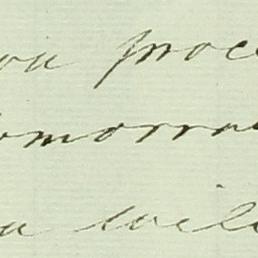 you proce
tomorrow
you will